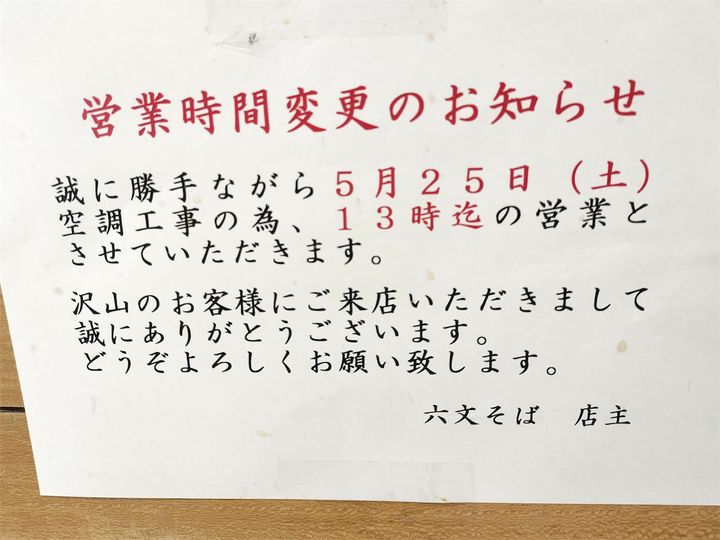 営業時間変更のお知らせ
誠に勝手ながら５月２５日（土）
空調工事の為、１３時迄の営業と
させていただきます。
沢山のお客様にご来店いただきまして
誠にありがとうございます。
どうぞよろしくお願い致します。
六文そば　店主